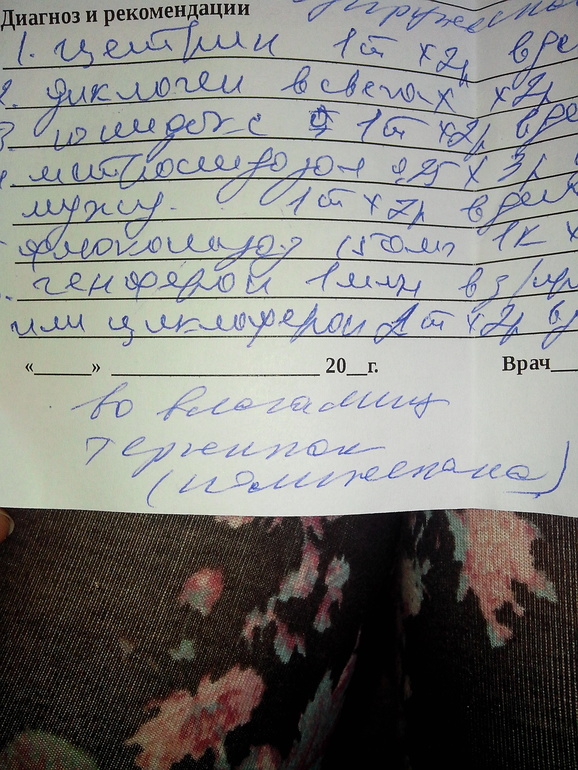 Диагноз и рекомендации
1. цетрин 1т х2р в де
2. диклоген в свечах х2р
3. юнидокс 1т х2р в де
метронидазол 0,25 х 3р
мужу. 1т х 2р в ден
флюконазол 150мг 1к х
генферон 1млн в з/пр
или циклоферон 2т х2р
«____» ____________ 20__г. Врач
во влагалищ
тержинан
(полижинакс)